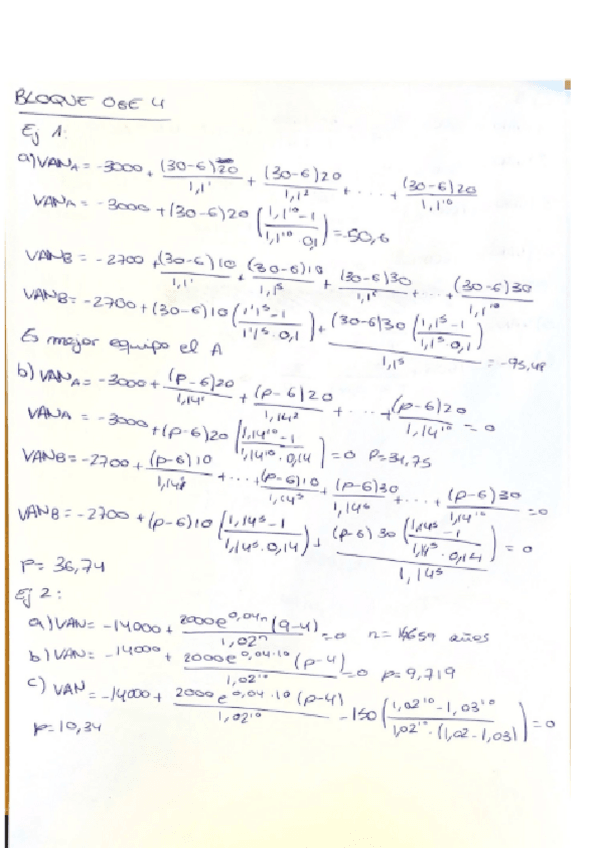 BLOQUE OBE 4
Ej 1:
a) VAN_A = -3000 + (30-6)20/1,1^1 + (30-6)20/1,1^2 + ... + (30-6)20/1,1^10
VAN_A = -3000 + (30-6)20 (1,1^10 - 1 / 1,1^10 · 0,1) = -50,6
VAN_B = -2700 + (30-6)10/1,1^1 + (30-6)10/1,1^5 + (30-6)30/1,1^5 + ... + (30-6)30/1,1^10
VAN_B = -2700 + (30-6)10 (1,1^5 - 1 / 1,1^5 · 0,1) + (30-6)30 (1,1^5 - 1 / 1,1^5 · 0,1) / 1,1^5 = -93,48
Es mejor equipo el A
b) VAN_A = -3000 + (P-6)20/1,14^1 + (p-6)20/1,14^2 + ... + (p-6)20/1,14^10 = 0
VAN_A = -3000 + (p-6)20 (1,14^10 - 1 / 1,14^10 · 0,14) = 0 P=34,75
VAN_B = -2700 + (p-6)10/1,14 + ... + (p-6)10/1,14^5 + (p-6)30/1,14^6 + ... + (p-6)30/1,14^10 = 0
VAN_B = -2700 + (p-6)10 (1,14^5 - 1 / 1,14^5 · 0,14) + (p-6)30 (1,14^5 - 1 / 1,14^5 · 0,14) / 1,14^5 = 0
P= 36,74
Ej 2:
a) VAN = -14000 + 2000e^0,04n (9-4) / 1,02^n = 0 n = años
b) VAN = -14000 + 2000e^0,04·10 (p-4) / 1,02^10 = 0 p= 9,719
c) VAN = -14000 + 2000e^0,04·10 (p-4) / 1,02^10 - 150 (1,02^10 - 1,03^10 / 1,02^10 · (1,02 - 1,03)) = 0
p= 10,34